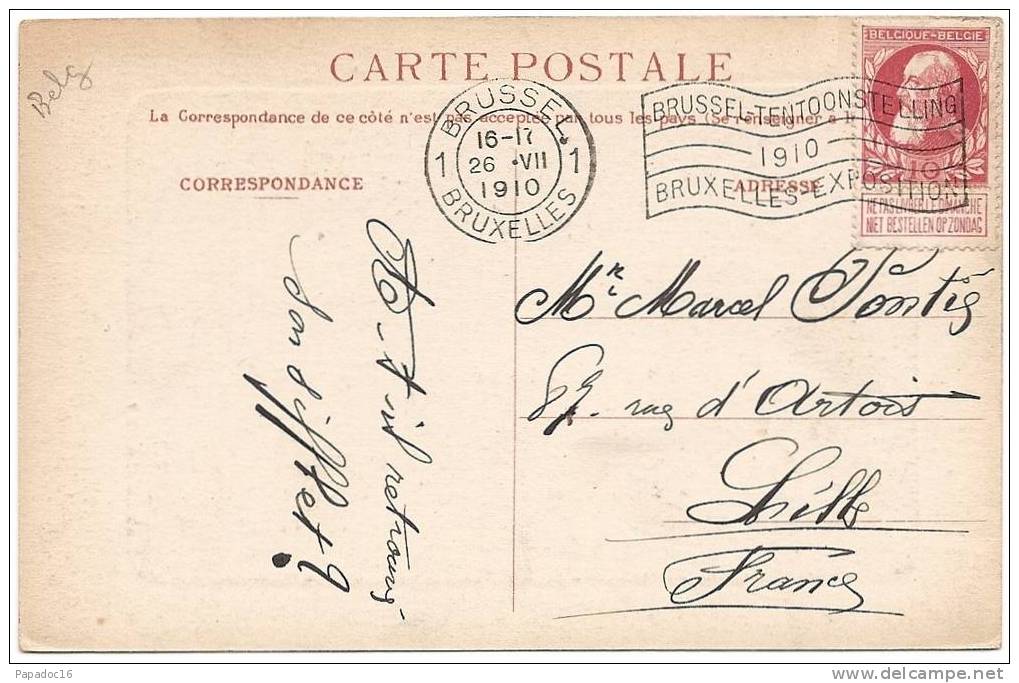 Belg
CARTE POSTALE
La Correspondance de ce côté n'est pas acceptée par tous les pays (Se renseigner à la
CORRESPONDANCE
ADRESSE
BRUSSEL
16-17
1 26 VII 1
1910
BRUXELLES
BRUSSEL-TENTOONSTELLING
1910
BRUXELLES-EXPOSITION
BELGIQUE-BELGIE
10
NE PAS LIVRER LE DIMANCHE
NIET BESTELLEN OP ZONDAG
Mr Marcel
rue d'Artois
Lille
France
A-t-il retrouvé
son sifflet ?
Papadoc16
www.delcampe.net